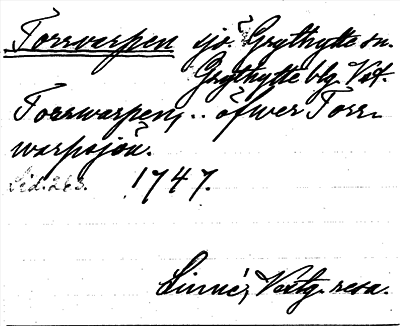 Torrvarpen sjö. Grythytte sn.
Grythytte blg. Vstm.
Torrwarpen, .. öfwer Torr-
warpsjöä.
Sid. 263. 1747.
Linné, Vestg. resa.